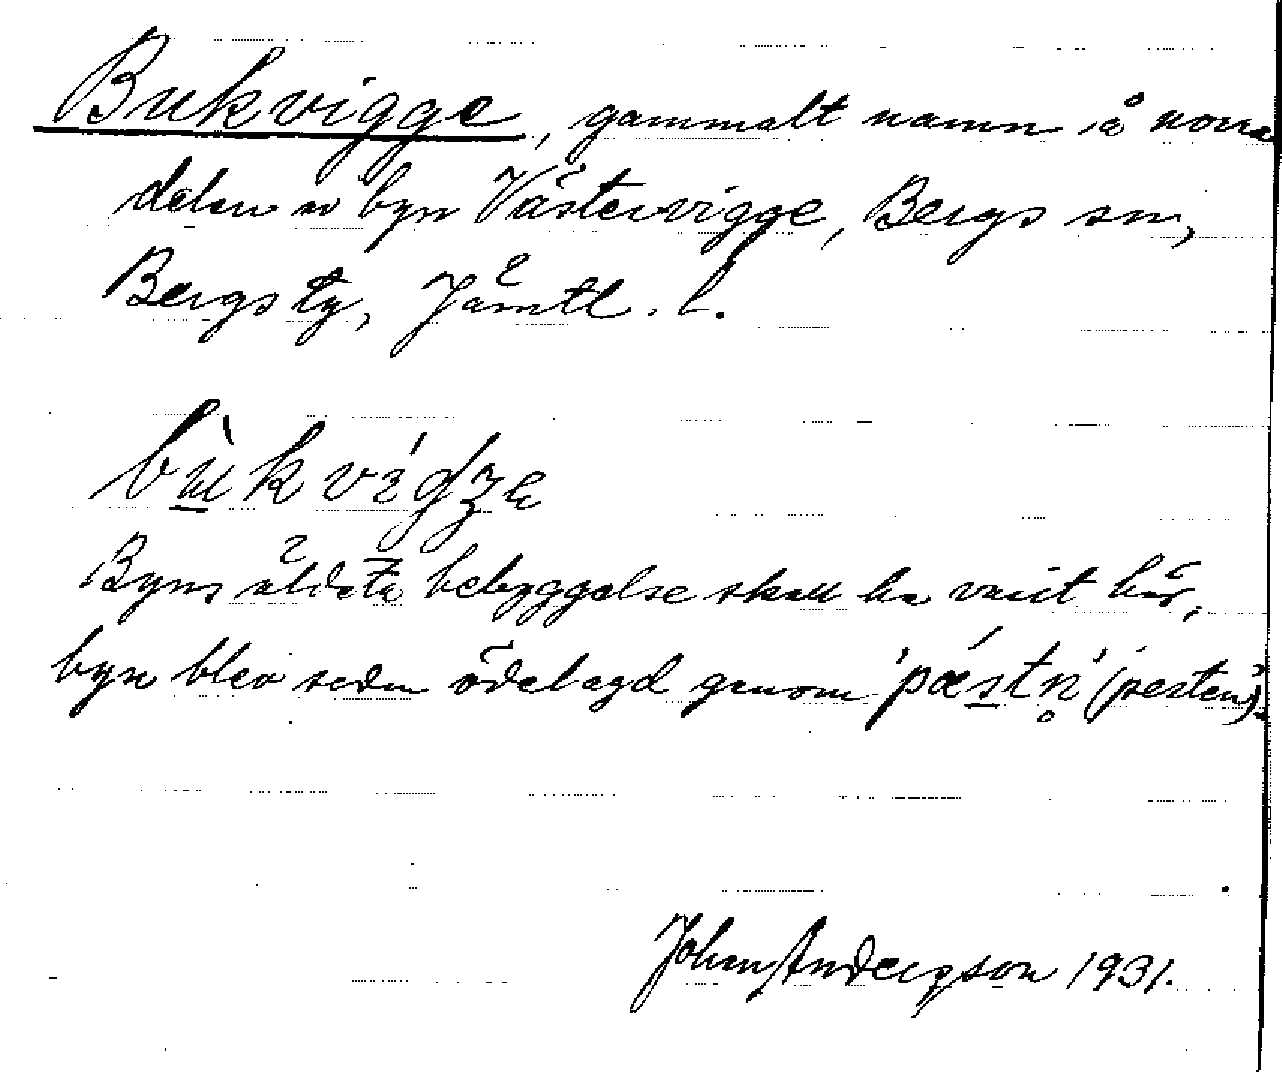 Bukvigge, gammalt namn på norra
delen av byn Västervigge, Bergs sn,
Bergs tg, Jämtl. l.
bùkvígʒe
Byns äldsta bebyggelse skall ha varit här,
byn blev sedan ödelagd genom 'pǽstn̥' (pesten).
John Andersson 1931.